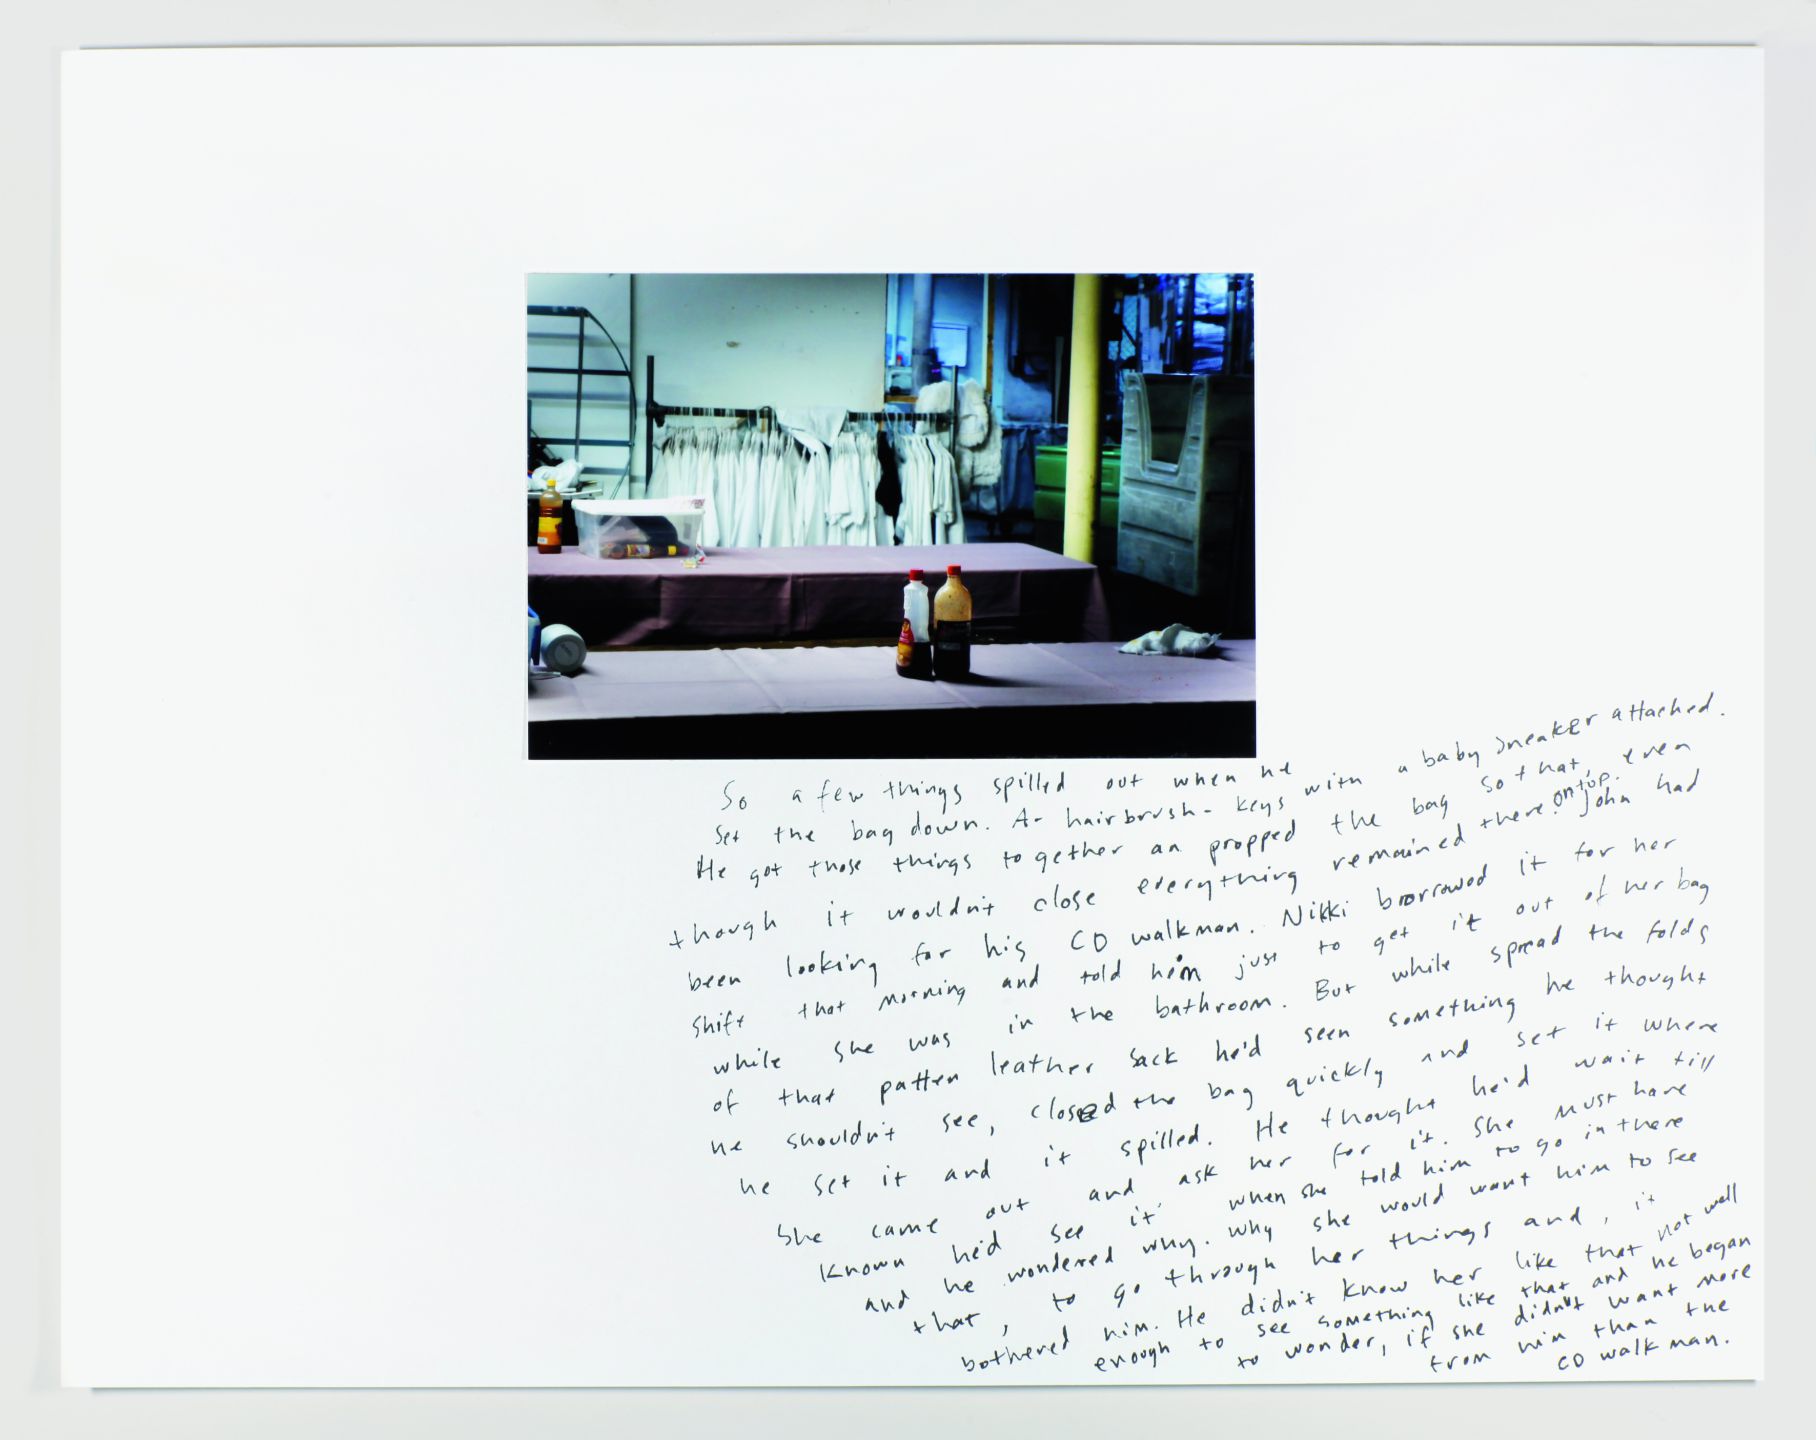 So a few things spilled out when he
set the bag down. A- hairbrush- keys with a baby sneaker attached.
He got those things together an propped the bag so that, even
though it wouldn't close everything remained there on top. John had
been looking for his CD walkman. Nikki borrowed it for her
shift that morning and told him just to get it out of her bag
while she was in the bathroom. But while spread the folds
of that patten leather sack he'd seen something he thought
he shouldn't see, closed the bag quickly and set it where
he set it and it spilled. He thought he'd wait till
she came out and ask her for it. She must have
known he'd see it when she told him to go in there
and he wondered why. why she would want him to see
that, to go through her things and, it
bothered him. He didn't know her like that not well
enough to see something like that and he began
to wonder, if she didn't want more
from him than the
CD walkman.